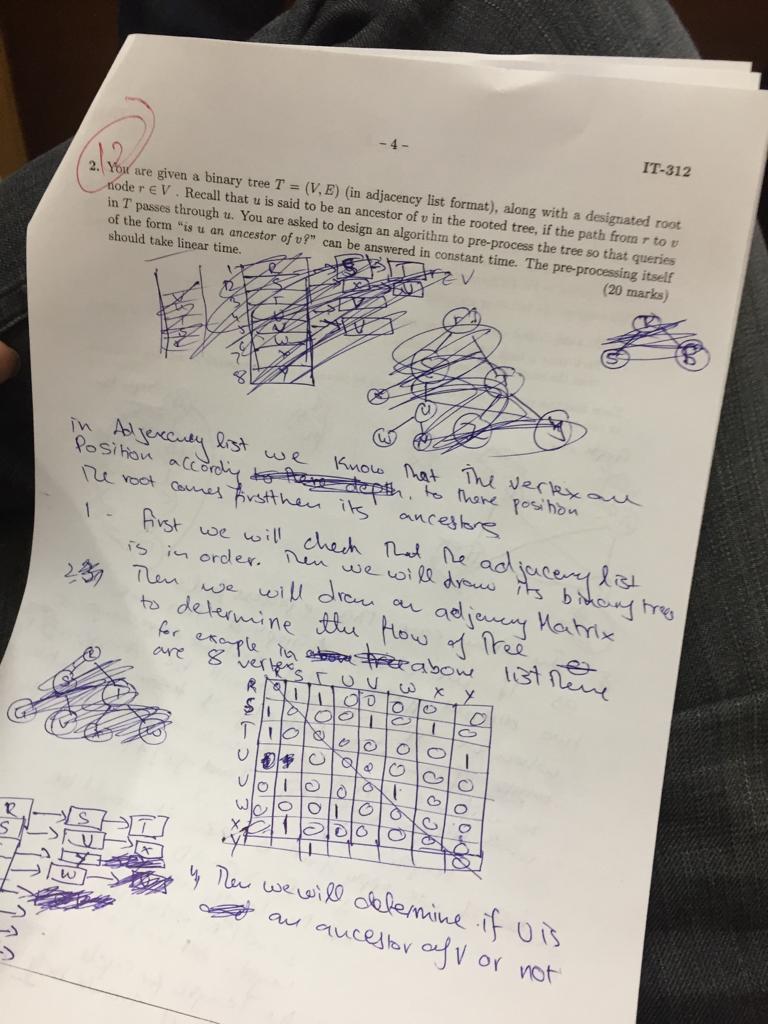 - 4 -
IT-312
12
2. You are given a binary tree T = (V, E) (in adjacency list format), along with a designated root
node r ∈ V . Recall that u is said to be an ancestor of v in the rooted tree, if the path from r to v
in T passes through u. You are asked to design an algorithm to pre-process the tree so that queries
of the form "is u an ancestor of v?" can be answered in constant time. The pre-processing itself
should take linear time.
(20 marks)
in Adjecency list we know that The vertex are
Position accordig to there position
The root comes first then its ancestors
1 - first we will check that the adjacency list
is in order. Then we will draw its binary trees
2 Then we will draw an adjency Matrix
to determine the flow of Tree
for example in above list there
are 8 vertex
R S T U V W X Y
R 0 1 1 0 0 0 0 0
S 1 0 0 0 1 0 1 0
T 1 0 0 0 0 0 0 1
U 0 0 0 0 0
V 0 1 0 0 0 1 0 0
W 0 0 0 1 0 0 0 0
X 0 1 0 0 0 0 0 0
Y 1 0
R S T
S U X
Y
W
4) Then we will determine if U is
an ancestor of V or not